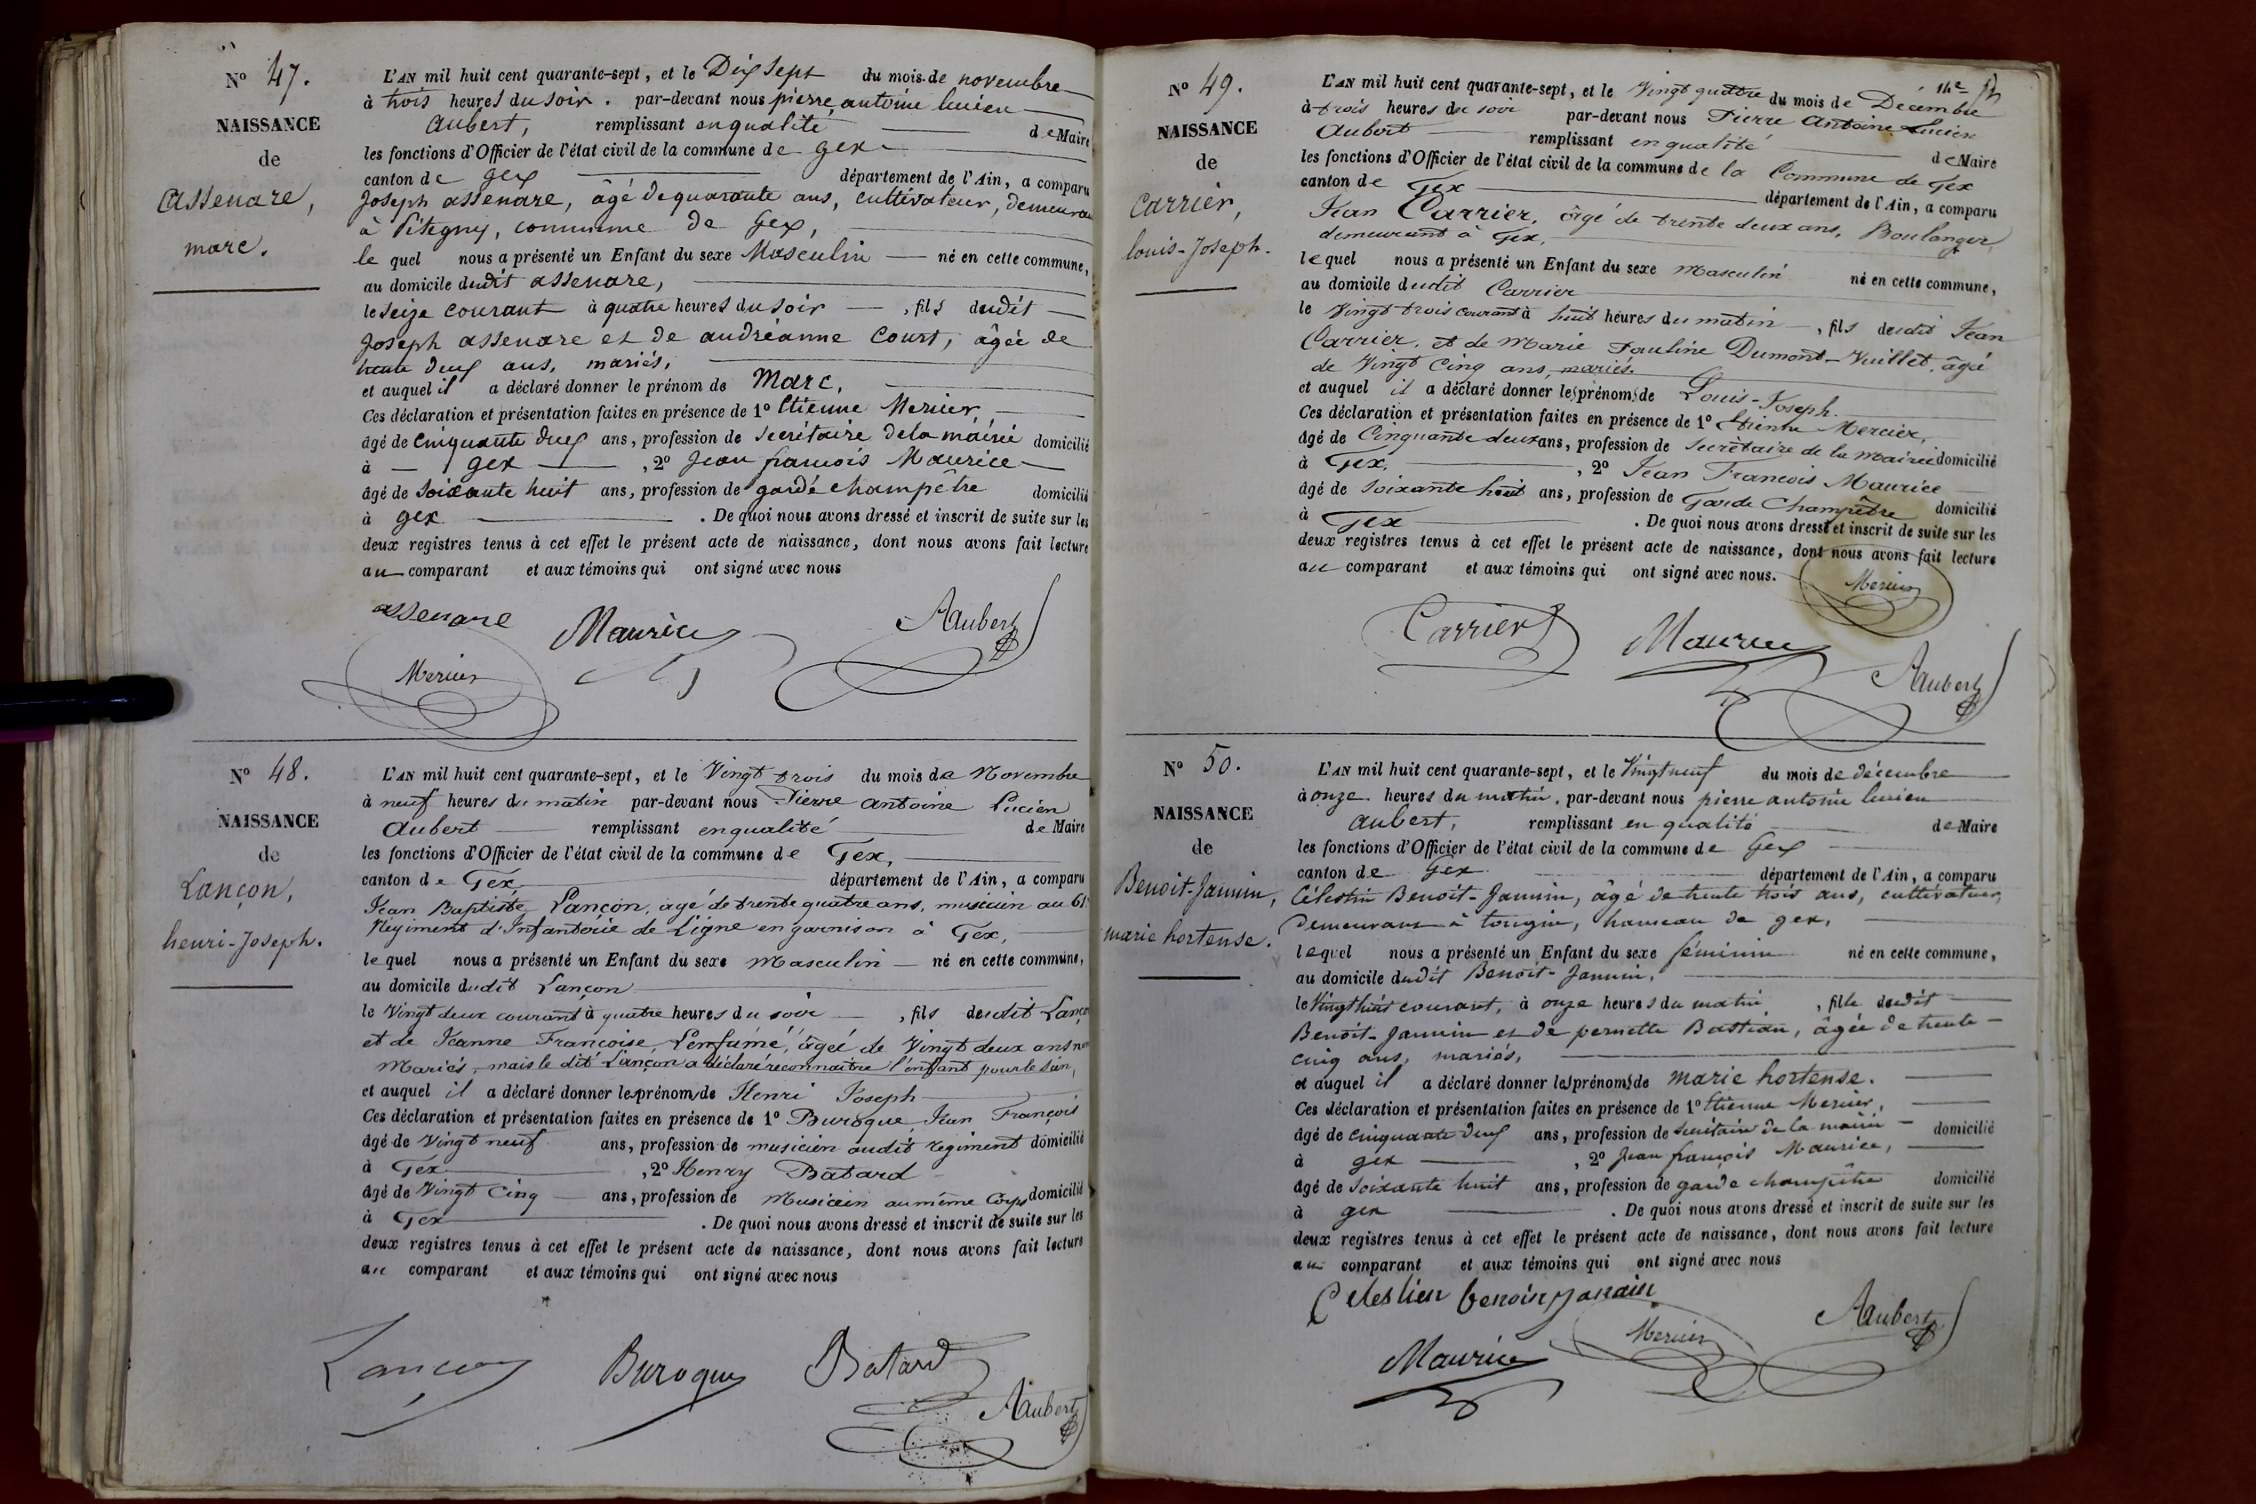 N° 47.
NAISSANCE
de
Assenare,
marc.
L'AN mil huit cent quarante-sept, et le Dix Sept du mois de novembre
à trois heures du soir. par-devant nous pierre antoine lucien
Aubert, remplissant en qualité de Maire
les fonctions d'Officier de l'état civil de la commune de gex
canton de gex département de l'Ain, a comparu
Joseph assenare, âgé de quarante ans, cultivateur, demeurant
à Pitegny, commune de Gex,
le quel nous a présenté un Enfant du sexe Masculin né en cette commune,
au domicile dudit assenare,
le seize courant à quatre heures du soir, fils dudit
Joseph assenare et de andréanne Court, âgée de
trente deux ans, mariés,
et auquel il a déclaré donner le prénom de Marc,
Ces déclaration et présentation faites en présence de 1° Etienne Mercier,
âgé de cinquante deux ans, profession de secrétaire de la mairie domicilié
à gex, 2° Jean françois Maurice
âgé de soixante huit ans, profession de garde champêtre domicilié
à gex. De quoi nous avons dressé et inscrit de suite sur les
deux registres tenus à cet effet le présent acte de naissance, dont nous avons fait lecture
au comparant et aux témoins qui ont signé avec nous
assenare Maurice Aubert
Mercier
N° 48.
NAISSANCE
de
Lançon,
henri-Joseph.
L'AN mil huit cent quarante-sept, et le Vingt trois du mois de Novembre
à neuf heures du matin par-devant nous Pierre Antoine Lucien
Aubert remplissant en qualité de Maire
les fonctions d'Officier de l'état civil de la commune de Gex,
canton de Gex, département de l'Ain, a comparu
Jean Baptiste Lançon, agé de trente quatre ans, musicien au 61
Régiment d'Infanterie de Ligne en garnison à Gex,
le quel nous a présenté un Enfant du sexe Masculin né en cette commune,
au domicile dudit Lançon
le Vingt deux courant à quatre heures du soir, fils dudit Lançon
et de Jeanne Françoise Lenfumé, âgée de Vingt deux ans non
Mariés, mais le dit Lançon a déclaré reconnaître l'enfant pour le sien,
et auquel il a déclaré donner les prénoms de Henri Joseph
Ces déclaration et présentation faites en présence de 1° Buroque Jean François
âgé de Vingt neuf ans, profession de musicien audit régiment domicilié
à Gex, 2° Henry Batard
âgé de Vingt Cinq ans, profession de Musicien au même Corps domicilié
à Gex. De quoi nous avons dressé et inscrit de suite sur les
deux registres tenus à cet effet le présent acte de naissance, dont nous avons fait lecture
au comparant et aux témoins qui ont signé avec nous
Lançon Buroque Batard
Aubert
N° 49.
NAISSANCE
de
Carrier,
louis-Joseph.
L'AN mil huit cent quarante-sept, et le Vingt quatre du mois de Décembre
à trois heures du soir par-devant nous Pierre Antoine Lucien
Aubert remplissant en qualité de Maire
les fonctions d'Officier de l'état civil de la commune de la Commune de Gex
canton de Gex département de l'Ain, a comparu
Jean Carrier, âgé de trente deux ans, Boulanger,
demeurant à Gex,
le quel nous a présenté un Enfant du sexe Masculin né en cette commune,
au domicile dudit Carrier
le Vingt trois courant à huit heures du matin, fils dudit Jean
Carrier, et de Marie Pauline Dumont-Vuillet, âgé
de Vingt Cinq ans, mariés.
et auquel il a déclaré donner les prénoms de Louis-Joseph.
Ces déclaration et présentation faites en présence de 1° Etienne Mercier,
âgé de Cinquante deux ans, profession de Secrétaire de la Mairie domicilié
à Gex, 2° Jean François Maurice
âgé de soixante huit ans, profession de Garde Champêtre domicilié
à Gex. De quoi nous avons dressé et inscrit de suite sur les
deux registres tenus à cet effet le présent acte de naissance, dont nous avons fait lecture
au comparant et aux témoins qui ont signé avec nous.
Mercier
Carrier Maurice
Aubert
N° 50.
NAISSANCE
de
Benoit-Jannin,
marie hortense.
L'AN mil huit cent quarante-sept, et le Vingt neuf du mois de décembre
à onze heures du matin, par-devant nous pierre antoine lucien
Aubert, remplissant en qualité de Maire
les fonctions d'Officier de l'état civil de la commune de Gex
canton de Gex département de l'Ain, a comparu
Célestin Benoit-Jannin, âgé de trente trois ans, cultivateur,
Demeurant à tougin, hameau de gex,
le quel nous a présenté un Enfant du sexe féminin né en cette commune,
au domicile dudit Benoit-Jannin,
le Vingt huit courant, à onze heures du matin, fille dudit
Benoit-Jannin et de pernette Bastian, âgée de trente
cinq ans, mariés,
et auquel il a déclaré donner les prénoms de Marie hortense.
Ces déclaration et présentation faites en présence de 1° Etienne Mercier,
âgé de cinquante deux ans, profession de secrétaire de la mairie domicilié
à gex, 2° Jean françois Maurice,
âgé de soixante huit ans, profession de garde champêtre domicilié
à gex. De quoi nous avons dressé et inscrit de suite sur les
deux registres tenus à cet effet le présent acte de naissance, dont nous avons fait lecture
au comparant et aux témoins qui ont signé avec nous
Celestien benoin janain
Maurice Mercier Aubert